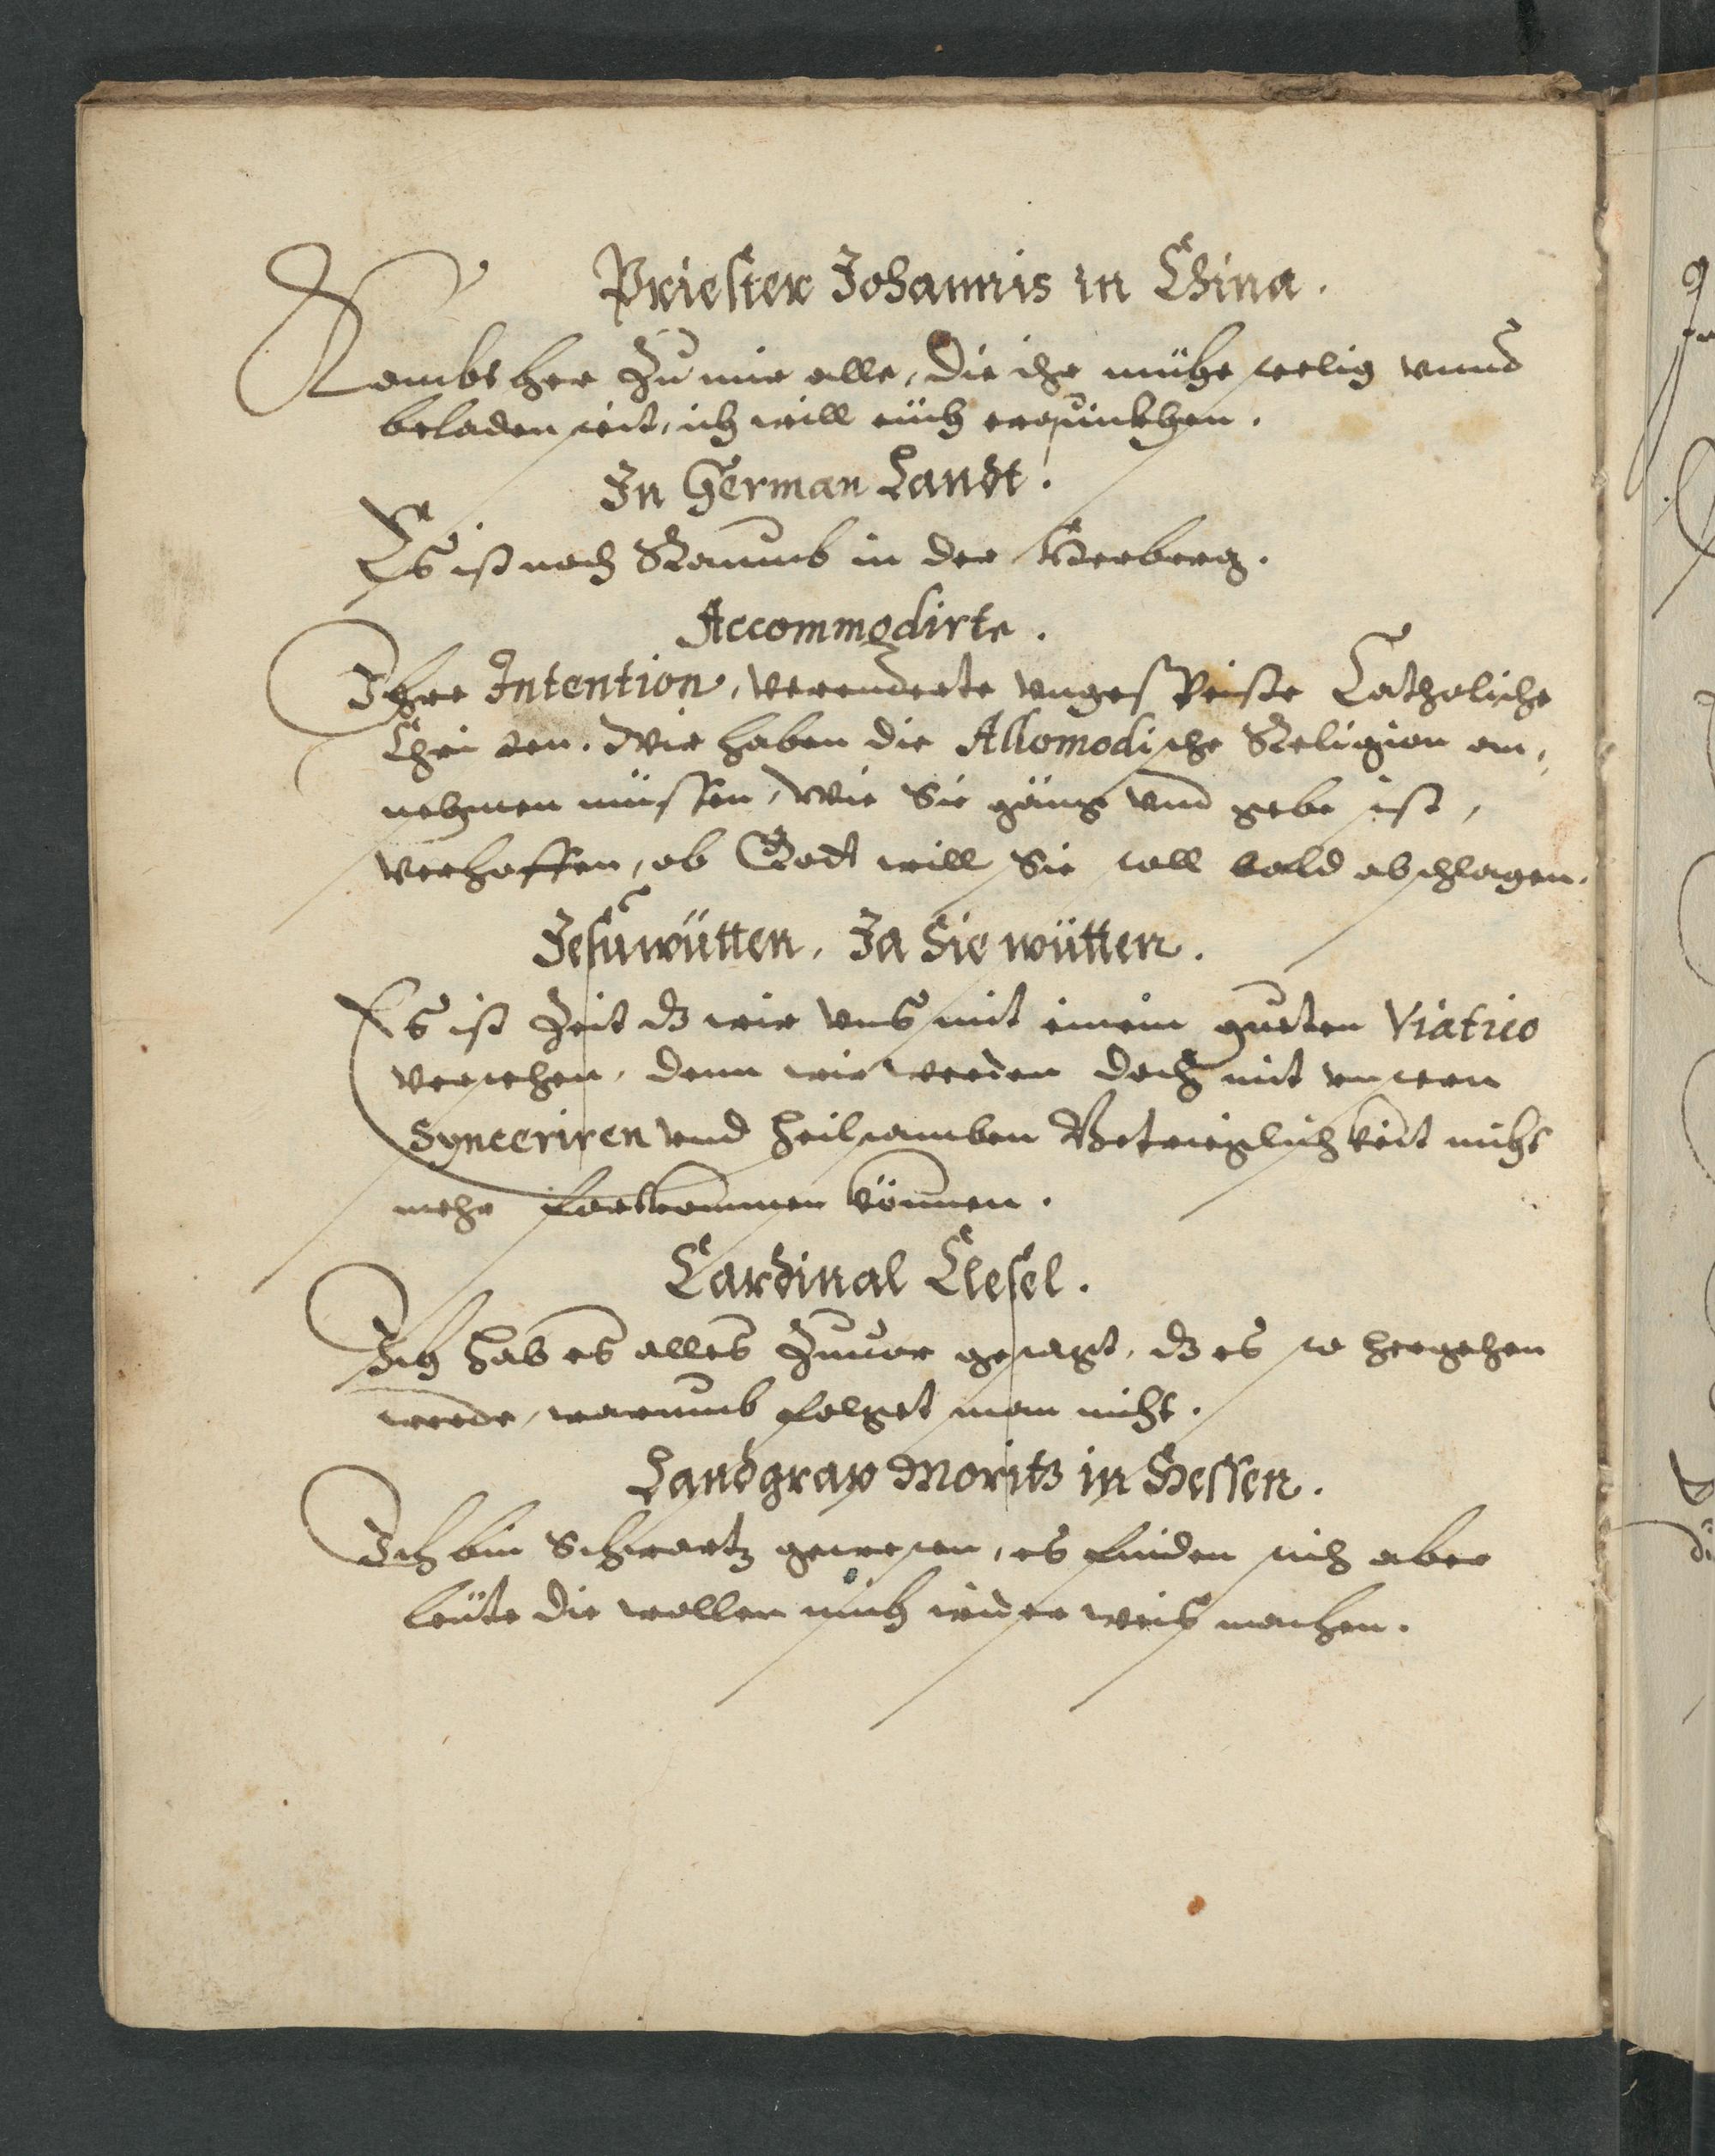 Priester Johannis in China.
Kombt her Zu mir alle, die ihr mühe seelig vnnd
beladen seit, ich will eüch erquickhen.
In German Landt.
Es ist noch Raumb in der Herberg.
Accommodirte.
Ihre Intention, verenderte vngespeiste Catholische
Christen. Wir haben die Allomodische Religion an,
nehmen müssen, wie Sie gäng vnd gebe ist,
verhoffen, ob Gott will Sie soll bald abschlagen.
Jesuwütten, Ja Sie wütten.
Es ist Zeit dz wir vns mit einem gueten Viatico
versehen, denn wir werden doch mit vnsern
Synceriren vnd heilsamben Betrieglichkeit nicht
mehr fortkommen können.
Cardinal Clesel.
Ich hab es alles Zuuor gesagt, dz es so hergehen
werde, warumb folget man nicht.
Landgrav Moritz in Hessen.
Ich bin Schwartz gewesen, es finden sich aber
leüte die wollen mich weis machen.